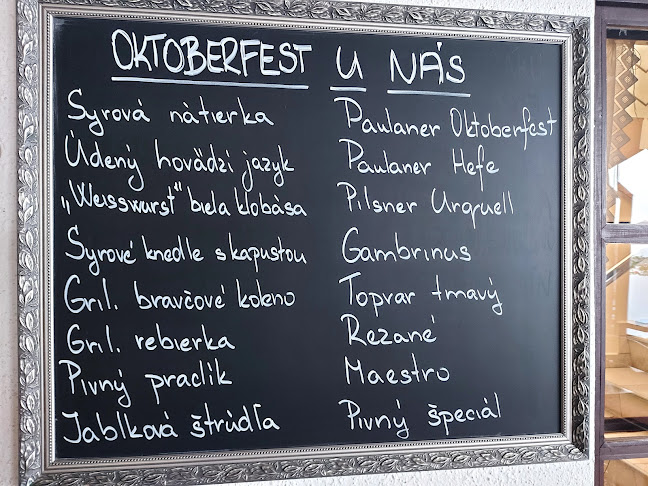 OKTOBERFEST U NÁS
Syrová nátierka
Údený hovädzí jazyk
„Weisswurst" biela klobása
Syrové knedle s kapustou
Gril. bravčové koleno
Gril. rebierka
Pivný praclík
Jablková štrúdľa
Paulaner Oktoberfest
Paulaner Hefe
Pilsner Urquell
Gambrinus
Topvar tmavý
Rezané
Maestro
Pivný špeciál